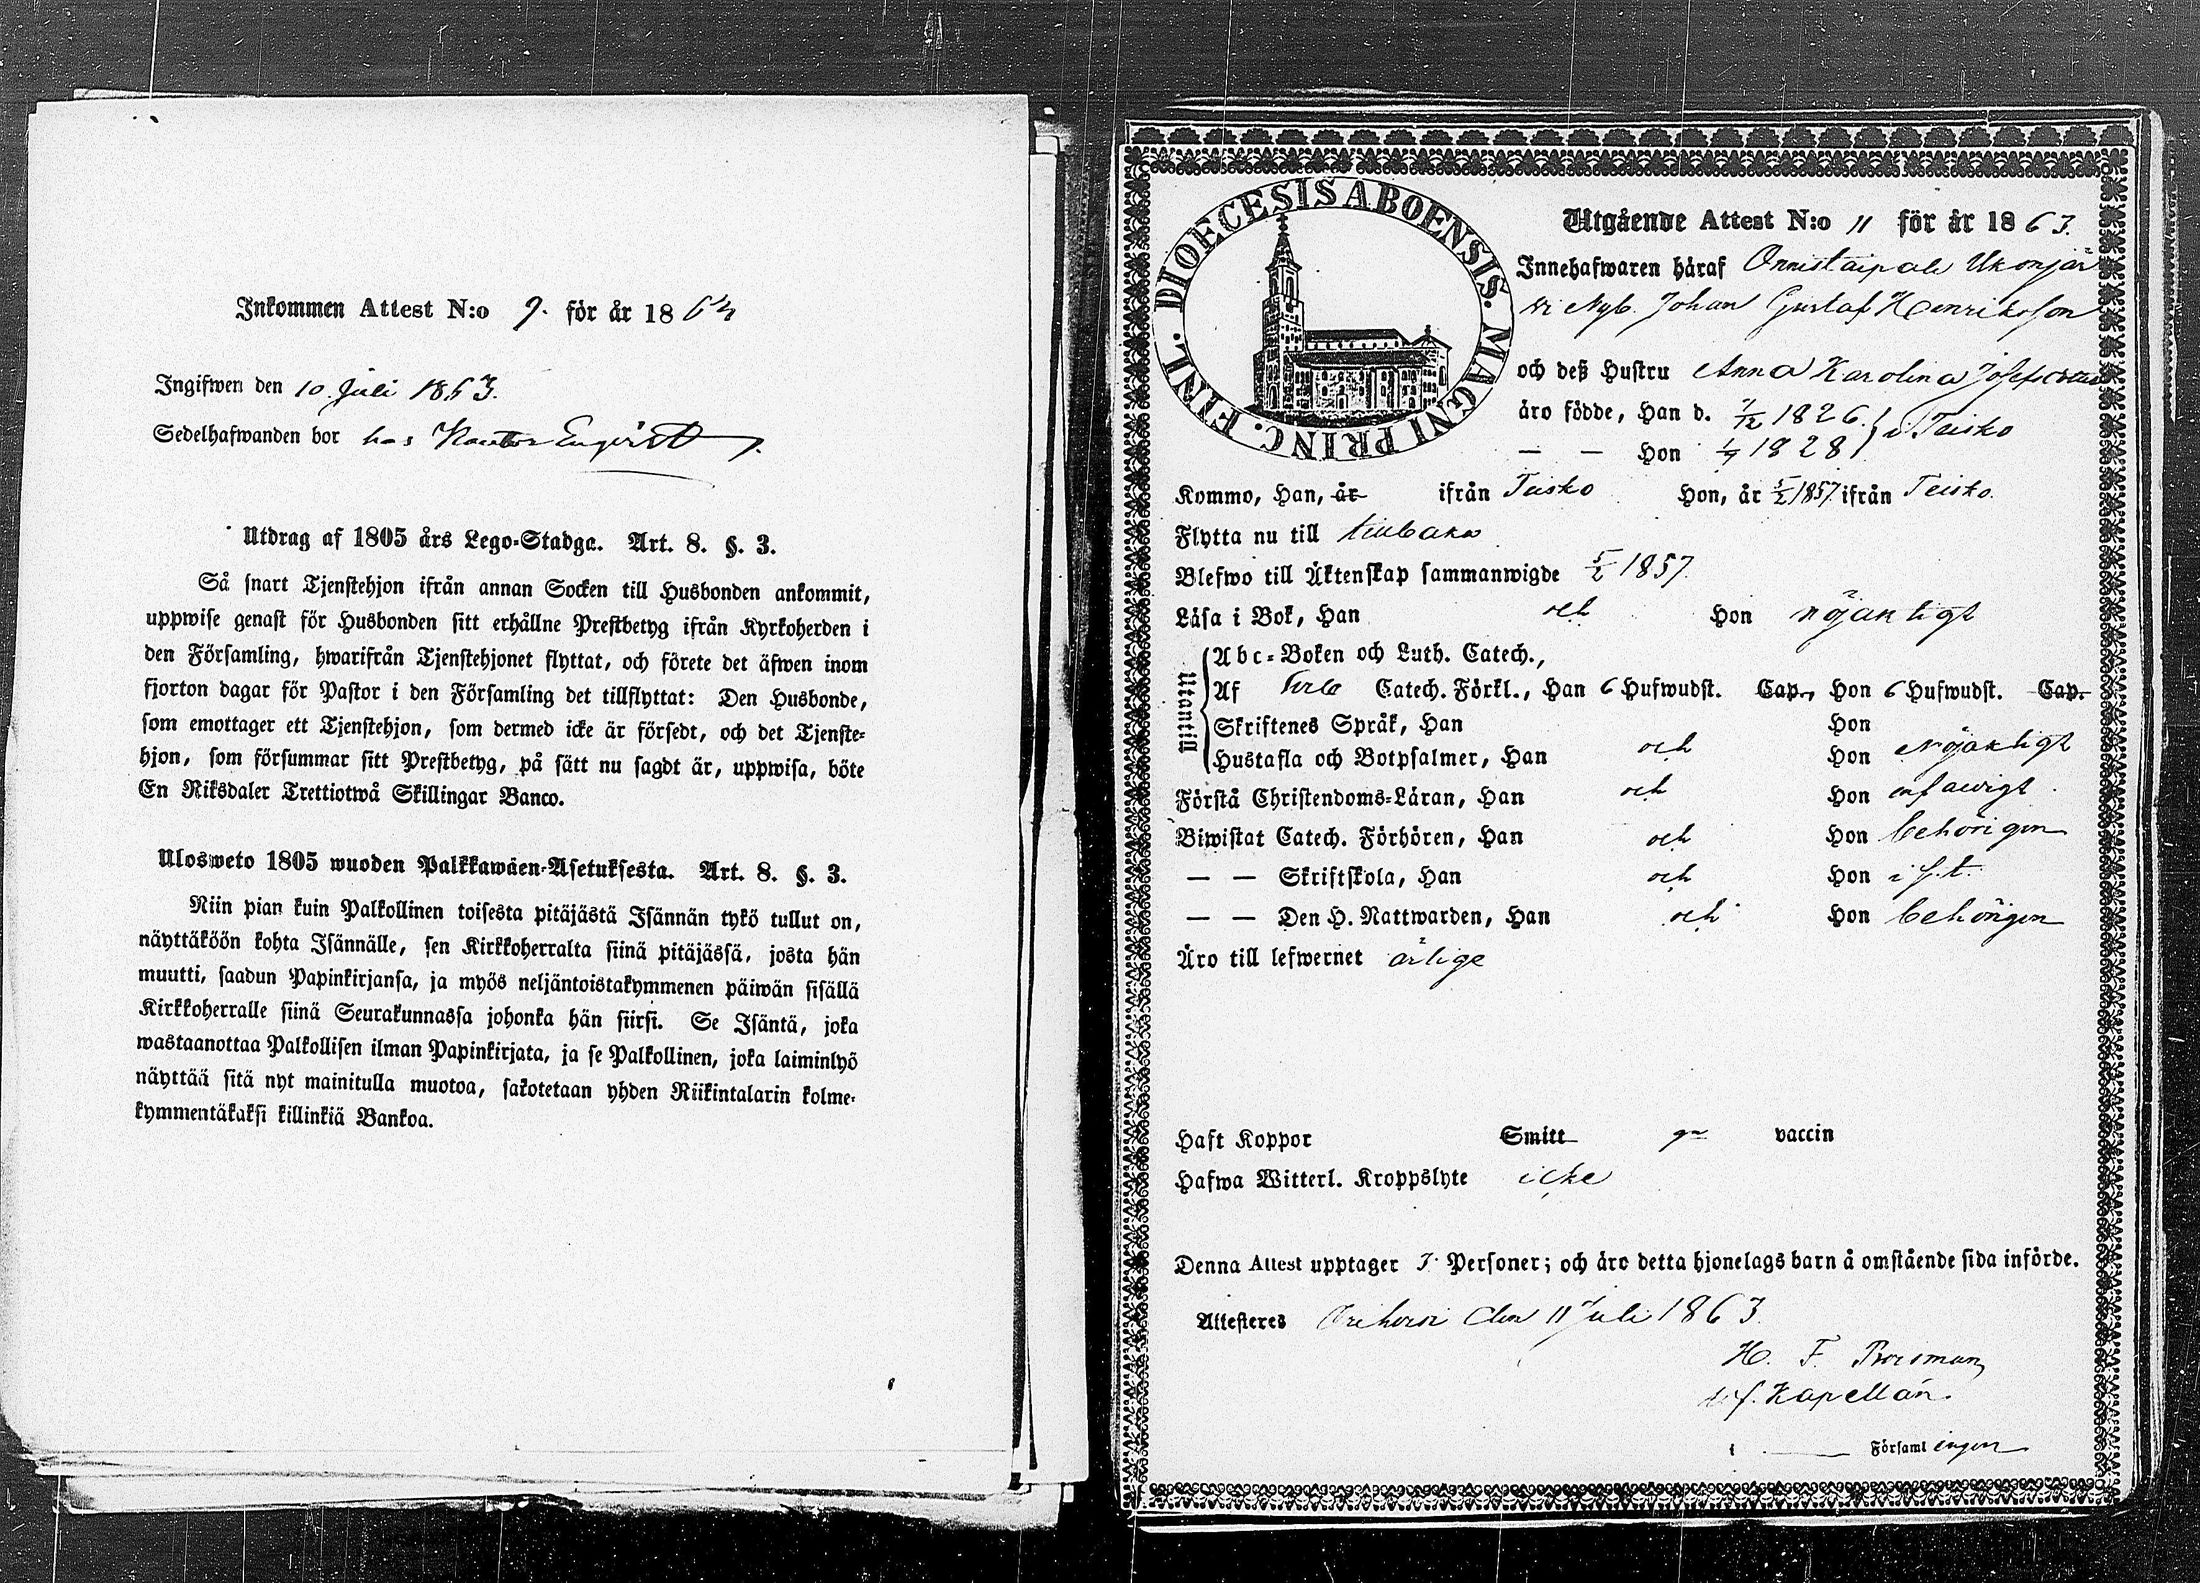 Inkommen Attest N:o 9. för år 1864
Ingifwen den 10 Juli 1863.
Sedelhafwanden bor hos Kantor Engvist
Utdrag af 1805 års Lego-Stadga. Art. 8. §. 3.
Så snart Tjenstehjon ifrån annan Socken till Husbonden ankommit,
uppwise genast för Husbonden sitt erhållne Prestbetyg ifrån Kyrkoherden i
den Församling, hwarifrån Tjenstehjonet flyttat, och förete det äfwen inom
fjorton dagar för Pastor i den Församling det tillflyttat: Den Husbonde,
som emottager ett Tjenstehjon, som dermed icke är försedt, och det Tjenste-
hjon, som försummar sitt Prestbetyg, på sätt nu sagdt är, uppwisa, böte
En Riksdaler Trettiotwå Skillingar Banco.
Ulosweto 1805 wuoden Palkkawäen-Asetuksesta. Art. 8. §. 3.
Niin pian kuin Palkollinen toisesta pitäjästä Isännän tykö tullut on,
näyttäköön kohta Isännälle, sen Kirkkoherralta siinä pitäjässä, josta hän
muutti, saadun Papinkirjansa, ja myös neljäntoistakymmenen päiwän sisällä
Kirkkoherralle siinä Seurakunnassa johonka hän siirsi. Se Isäntä, joka
wastaanottaa Palkollisen ilman Papinkirjata, ja se Palkollinen, joka laiminlyö
näyttää sitä nyt mainitulla muotoa, sakotetaan yhden Riikintalarin kolme-
kymmentäkaksi killinkiä Bankoa.
DIOECESIS ABOENSIS. MAGNI PRINC. FINL.
Utgående Attest N:o 11 för år 1863.
Innehafwaren häraf Onnistaipale Ukonjär
Nyb. Johan Gustaf Henriksson
och deß Hustru Anna Karolina Josefsdotter
äro födde, Han d. 7/12 1826 } i Teisko
— — Hon 1/9 1828
Kommo, Han, år ifrån Teisko Hon, år 5/2 1857 ifrån Teisko.
Flytta nu till tillbaka
Blefwo till Äktenskap sammanwigde 5/2 1857.
Läsa i Bok, Han och Hon nöjaktigt
Utantill
Abc-Boken och Luth. Catech.,
Af Catech. Förkl., Han 6 Hufwudst. Cap., Hon 6 Hufwudst. Cap.
Skriftenes Språk, Han Hon
Hustafla och Botpsalmer, Han och Hon Nöjaktigt
Förstå Christendoms-Läran, Han och Hon enfaldigt
Biwistat Catech. Förhören, Han och Hon behörigen
— — Skriftskola, Han och Hon i s. t.
— — Den H. Nattwarden, Han och Hon behörigen
Äro till lefwernet ärlige
Haft Koppor Smitt vaccin
Hafwa Witterl. Kroppslyte icke
Denna Attest upptager 7 Personer; och äro detta hjonelags barn å omstående sida införde.
Attesteres Orihvesi den 11 Juli 1863.
H. F.
Kapellan.
i ——— Församlingen